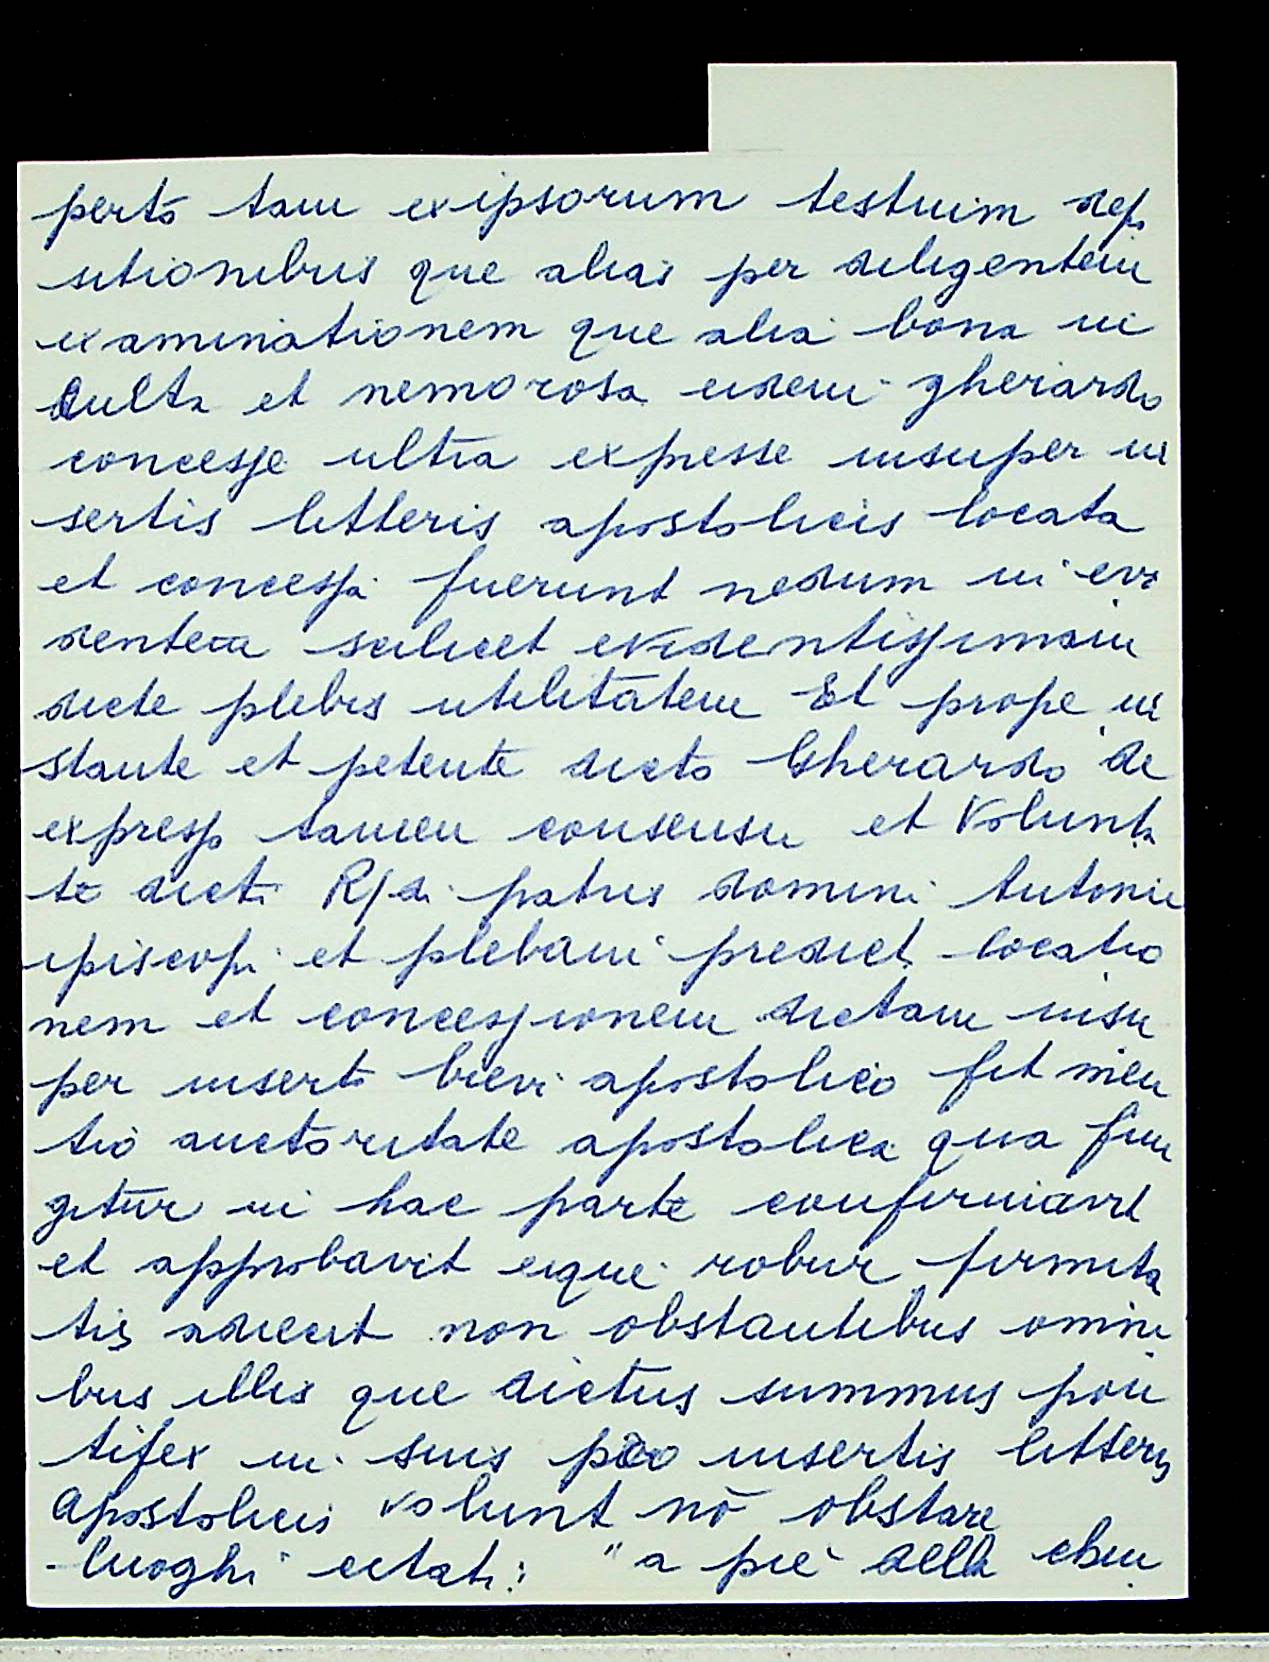 perto tam ex ipsorum testuim depo
sitionibus que alias per diligentem
examinationem que alia bona in
culta et nemorosa eidem gherardo
concesse ultra expresse insuper in
sertis litteris apostolicis locata
et concessa fuerunt nedum in evi
dentem scilicet evidentissimam
dicte plebis utilitatem Et prope in
stante et petente dicto Gherardo de
expresso tamen consensu et Volunta
te dicti R/di patris domini Antonii
episcopi et plebani predict locatio
nem et concessionem dictam insu
per inserto brevi apostolico fit men
tio auctoritate apostolica qua fun
gitur in hac parte confirmavit
et approbavit eique robur firmita
tis adiecit non obstantibus omni
bus illis que dictus summus pon
tifex in suis pro insertis litteris
apostolicis volunt nō obstare
luoghi citati: "a piè della chiu